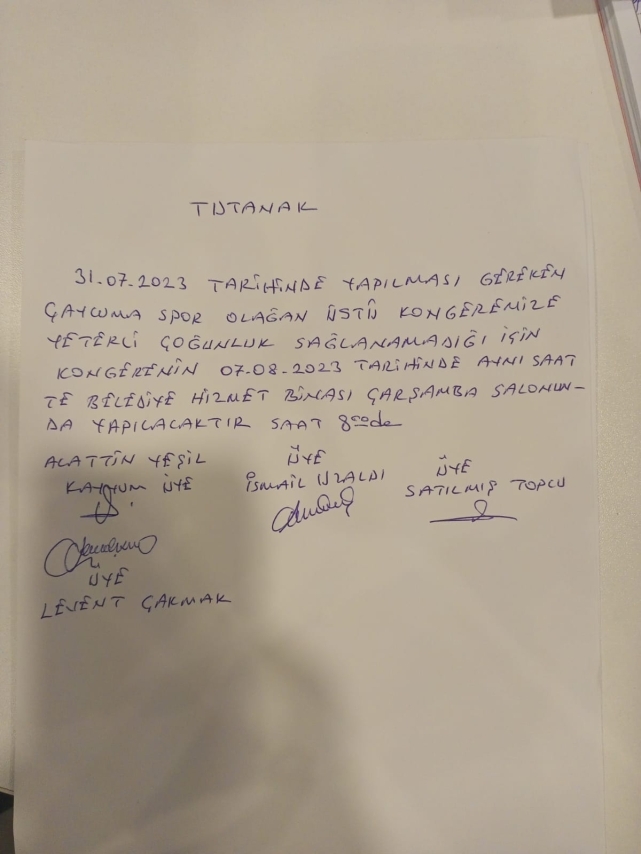 TUTANAK
31.07.2023 TARİHİNDE YAPILMASI GEREKEN
ÇAYCUMA SPOR OLAĞAN ÜSTÜ KONGEREMİZE
YETERLİ ÇOĞUNLUK SAĞLANAMADIĞI İÇİN
KONGERENİN 07-08-2023 TARİHİNDE AYNI SAAT
TE BELEDİYE HİZMET BİNASI ÇARŞAMBA SALONUN-
DA YAPILACAKTIR SAAT 8⁰⁰de
ALATTİN YEŞİL ÜYE ÜYE
KAYYUM ÜYE İSMAİL UZALDI SATILMIŞ TOPCU
ÜYE
LEVENT ÇAKMAK